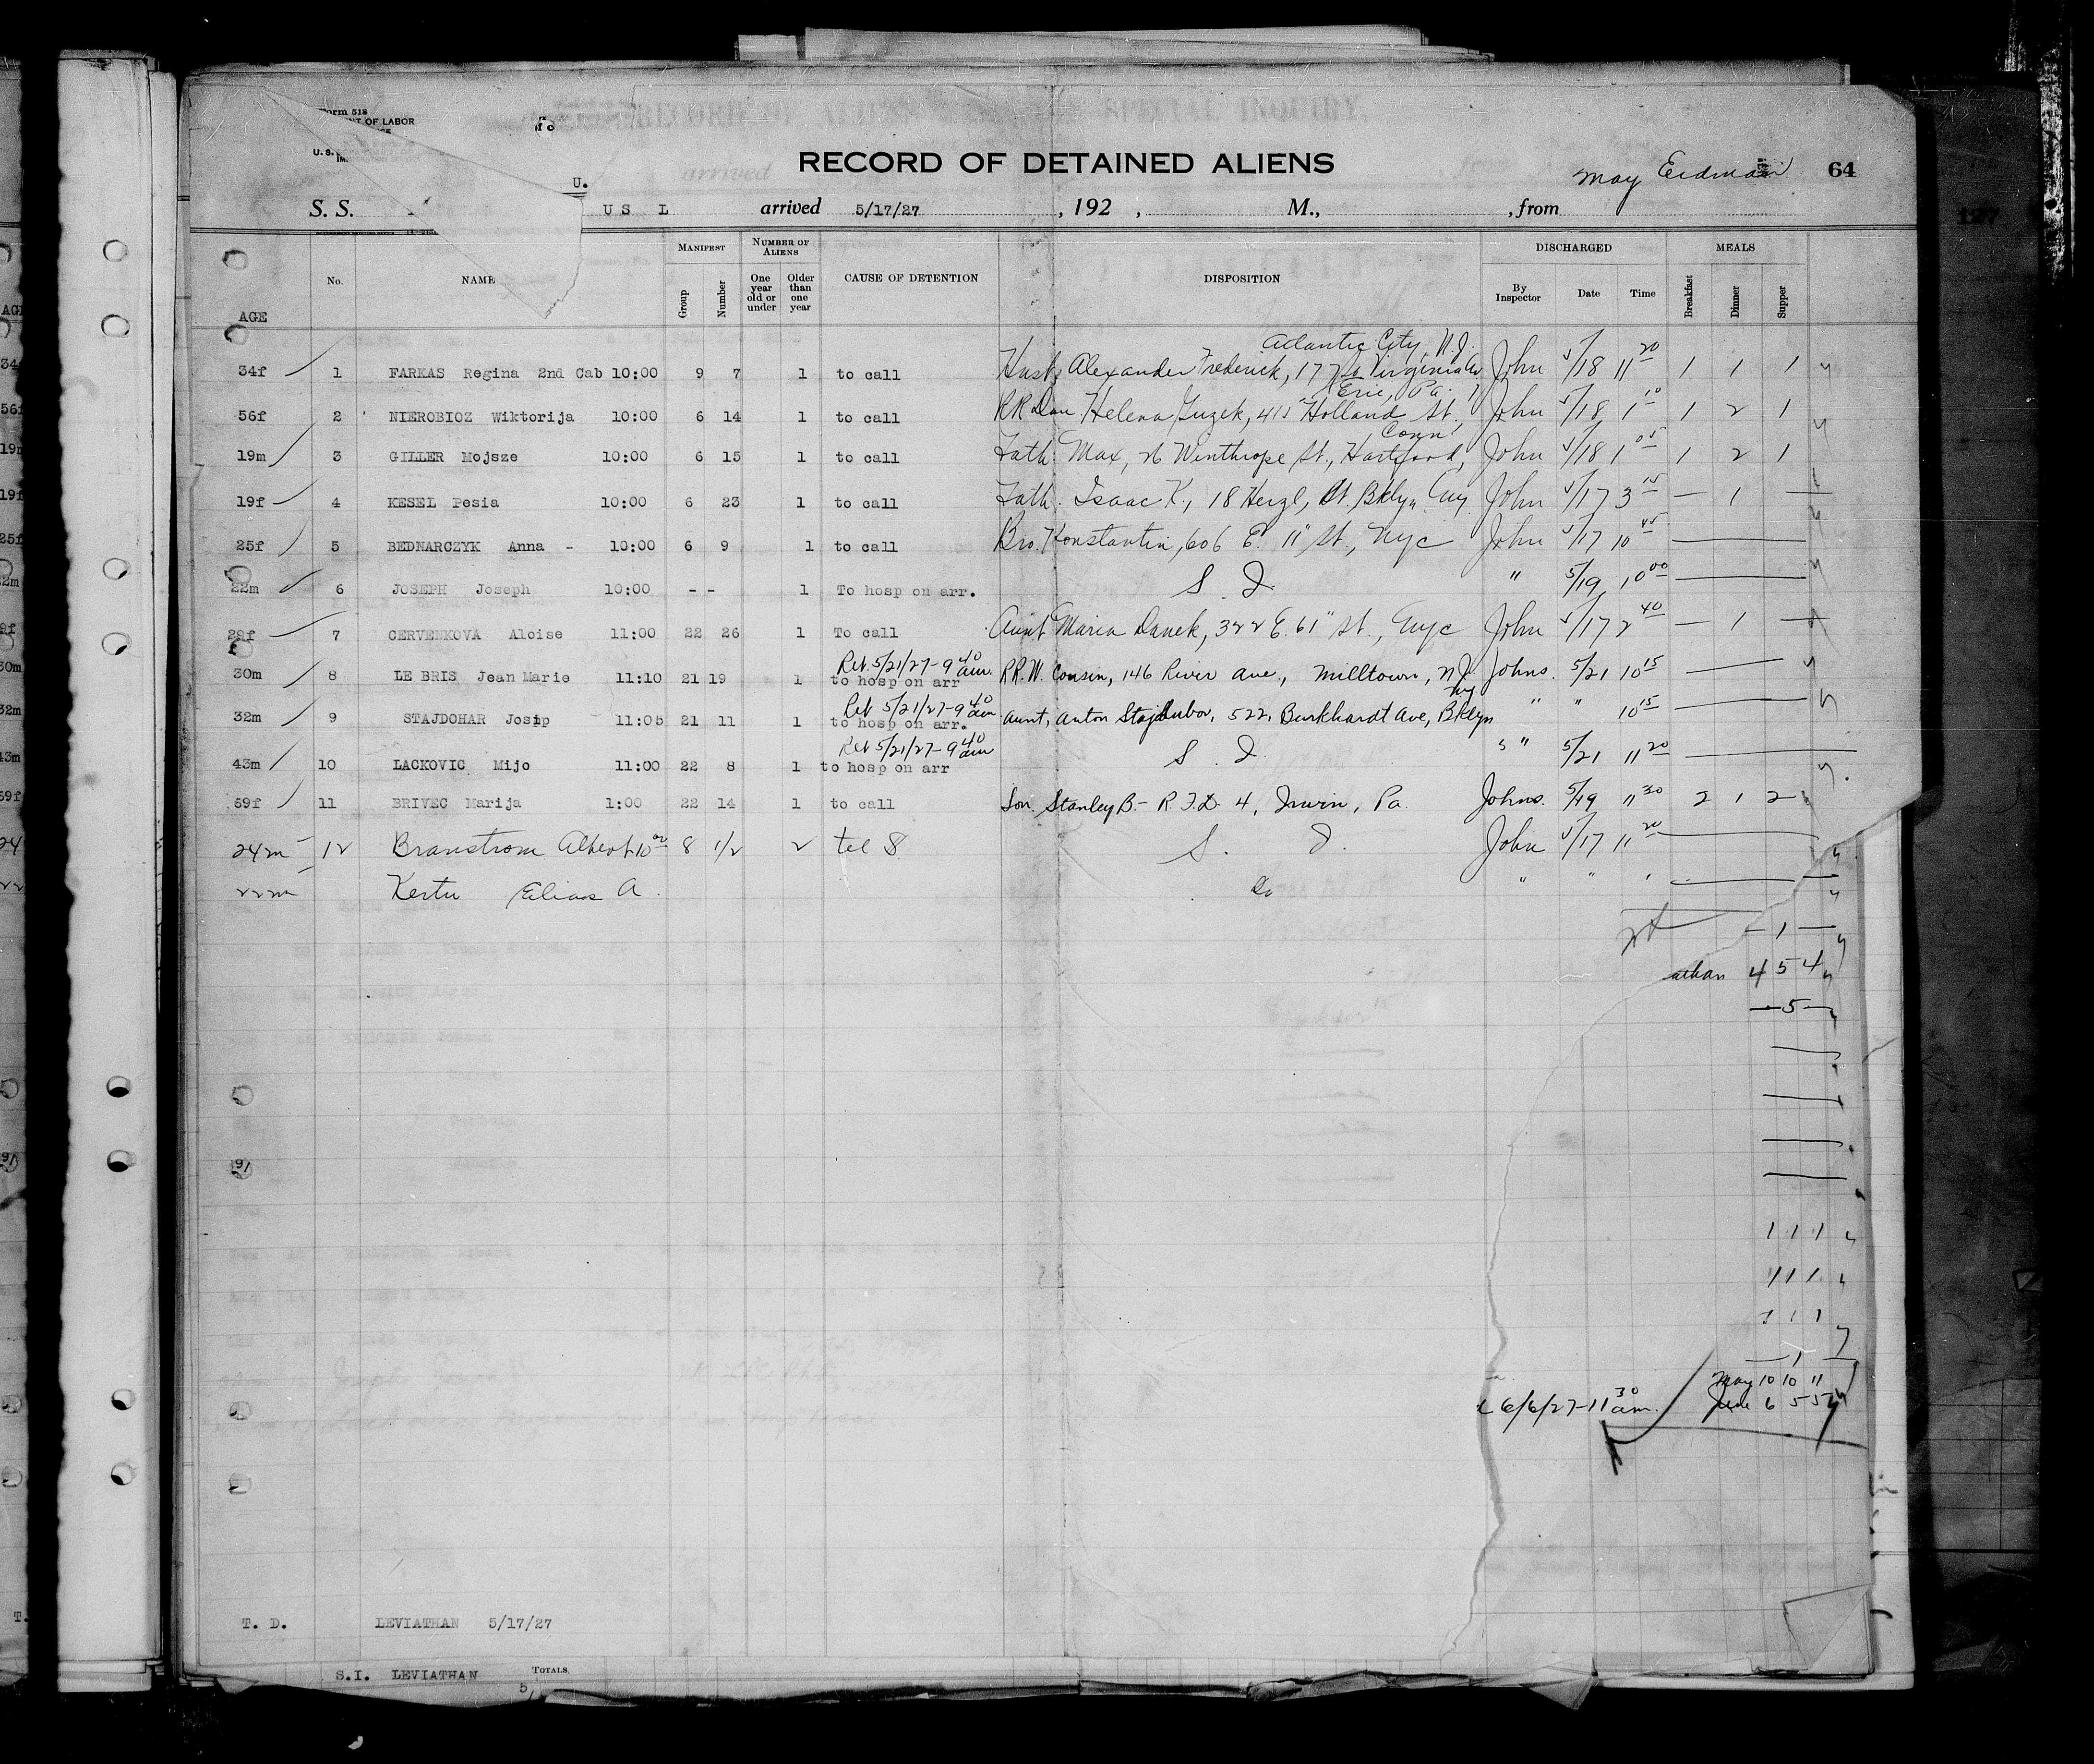 Form 518
T OF LABOR
U. S.
RECORD OF DETAINED ALIENS
May Erdman 64
U.
S. S. U S L arrived 5/17/27, 192 , M., , from
AGE No. NAME MANIFEST Group Number NUMBER OF ALIENS One year old or under Older than one year CAUSE OF DETENTION DISPOSITION DISCHARGED By Inspector Date Time MEALS Breakfast Dinner Supper
Atlantic City N.J.
34f 1 FARKAS Regina 2nd Cab 10:00 9 7 1 to call Husb Alexander Frederick, 17 Virginia Av John 5/18 11 20 1 1 1
Erie, Pa.
56f 2 NIEROBIOZ Wiktorija 10:00 6 14 1 to call Helena Guzek, 415 Holland St., John 5/18 1 10 1 2 1
Conn
19m 3 GILLER Mojsze 10:00 6 15 1 to call Fath. Max, 26 Winthrope St., Hartford, John 5/18 1 05 1 2 1
19f 4 KESEL Pesia 10:00 6 23 1 to call Fath. Isaac K., 18 Herzl, St. Bklyn John 5/17 3 15 — 1 —
25f 5 BEDNARCZYK Anna - 10:00 6 9 1 to call Bro. Konstantin, 606 E. 11" St., Nyc John 5/17 10 45
22m 6 JOSEPH Joseph 10:00 - - 1 To hosp on arr. S. I. " 5/19 10 00
28f 7 CERVENKOVA Aloise 11:00 22 26 1 To call Aunt Maria Danek, 322 E. 61" St., Nyc John 5/17 2 40 — 1 —
Ret. 5/21/27-9 40 am.
30m 8 LE BRIS Jean Marie 11:10 21 19 1 to hosp on arr R.R.W. Cousin, 146 River Ave., Milltown, N.J. Johns. 5/21 10 15
Ret 5/21/27-9 40 am ny
32m 9 STAJDOHAR Josip 11:05 21 11 1 to hosp on arr. Aunt, Anton Stajduhor, 522, Burkhardt Ave, Bklyn " " 10 15
Ret 5/21/27-9 40 am
43m 10 LACKOVIC Mijo 11:00 22 8 1 to hosp on arr S. I. " 5/21 11 20
59f 11 BRIVEC Marija 1:00 22 14 1 to call Son. Stanley B.- R.F.D. 4, Irwin, Pa. Johns. 5/19 11 30 2 1 2
24m 12 Branstrom Albert 10 00 8 1/2 2 tel $ S. I. John 5/17 11 20
22m Kertu Elias A. Do " " "
— 1 —
athan 4 5 4
— 5 —
1 1 1
1 1 1
1 1 1
— 1 —
May 10 10 11
6/6/27-11 30 am. June 6 5 5
T. D. LEVIATHAN 5/17/27
S.I. LEVIATHAN TOTALS,
5